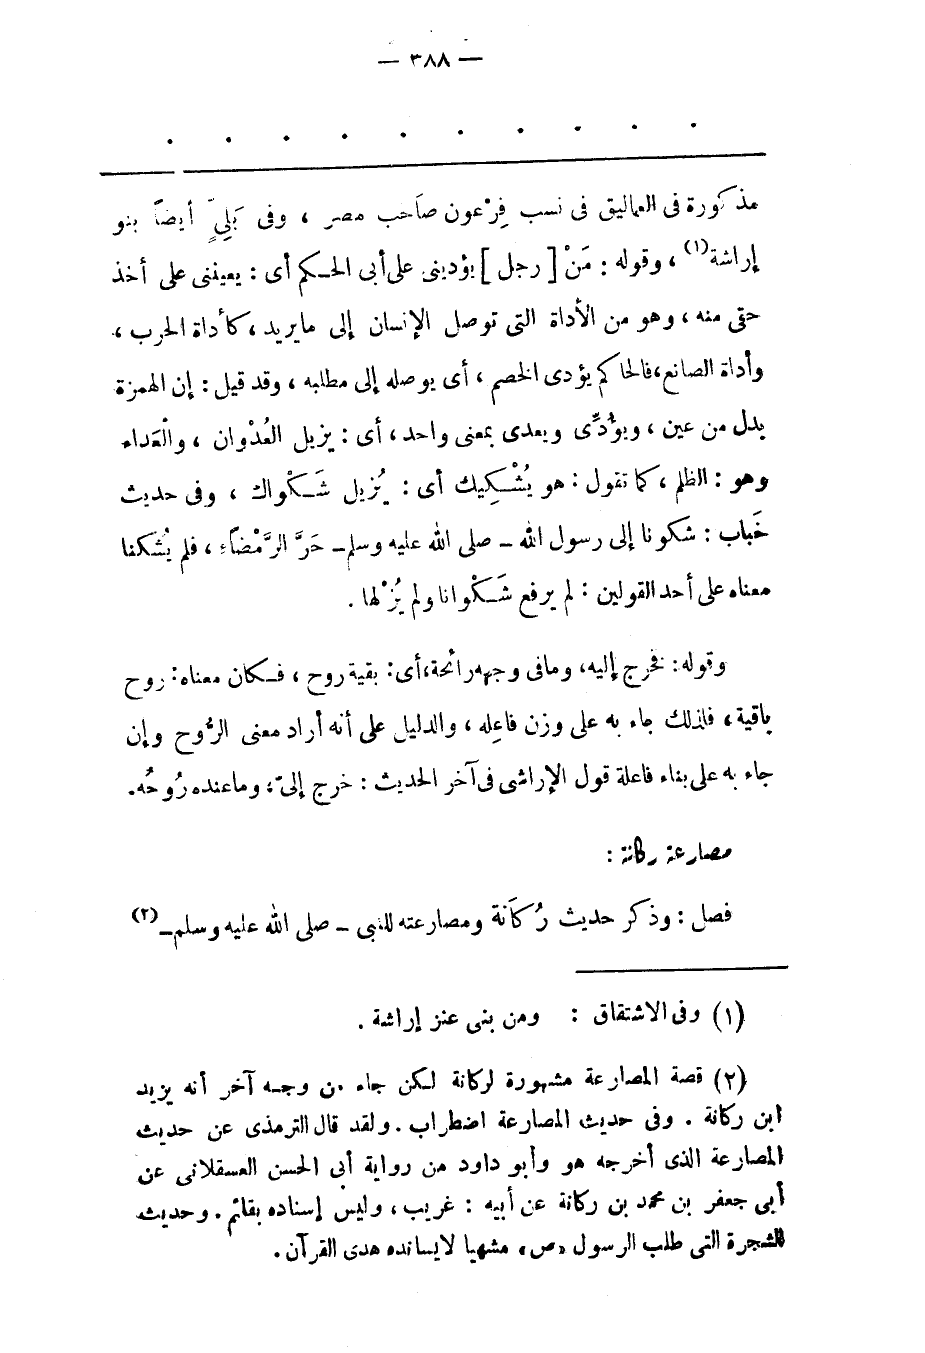 — ٣٨٨ —
. . . . . . . . . .
مذكورة فى العماليق فى نسب فِرْعون صاحب مصر ، وفى بَلِىٍّ أيضاً بنو
إراشة(١) ، وقوله : مَنْ [ رجل ] يؤدينى على أبى الحـكم أى : يعيننى على أخذ
حقى منه ، وهو من الأداة التى توصل الإنسان إلى مايريد ، كأداة الحرب ،
وأداة الصانع، فالحاكم يؤدى الخصم ، أى يوصله إلى مطلبه ، وقد قيل : إن الهمزة
بدل من عين ، ويؤدِّى ويعدى بمعنى واحد ، أى : يزيل العُدْوان ، والْعَداء
وهو : الظلم ، كما تقول : هو يُشْـكِيك أى : يُزيل شَـكْواك ، وفى حديث
خَباب : شكونا إلى رسول الله ـ صلى الله عليه وسلم ـ حَرَّ الرَّمْضاءِ ، فلم يُشكنا
معناه على أحد القولين : لم يرفع شَـكْوانا ولم يُزْلها .
وقوله : فخرج إليه، ومافى وجهه رائحة، أى : بقية روح ، فـكان معناه : روح
باقية ، فلذلك جاء به على وزن فاعِله ، والدليل على أنه أراد معنى الرُّوح وإن
جاء به على بناء فاعلة قول الإراشى فى آخر الحديث : خرج إلىّ ، وماعنده رُوحُه.
مصارعة ركانة :
فصل : وذكر حديث رُكَانة ومصارعته للنبى ـ صلى الله عليه وسلم ـ(٢)
(١) وفى الاشتقاق : ومن بنى عنز إراشة .
(٢) قصة المصارعة مشهورة لركانة لـكن جاء من وجـه آخر أنه يزيد
ابن ركانة . وفى حديث المصارعة اضطراب . ولقد قال الترمذى عن حديث
المصارعة الذى أخرجه هو وأبو داود من رواية أبى الحسن العسقلانى عن
أبى جعفر بن محمد بن ركانة عن أبيه : غريب ، وليس إسناده بقائم . وحديث
الشجرة التى طلب الرسول «ص» مشيها لايسانده هدى القرآن .